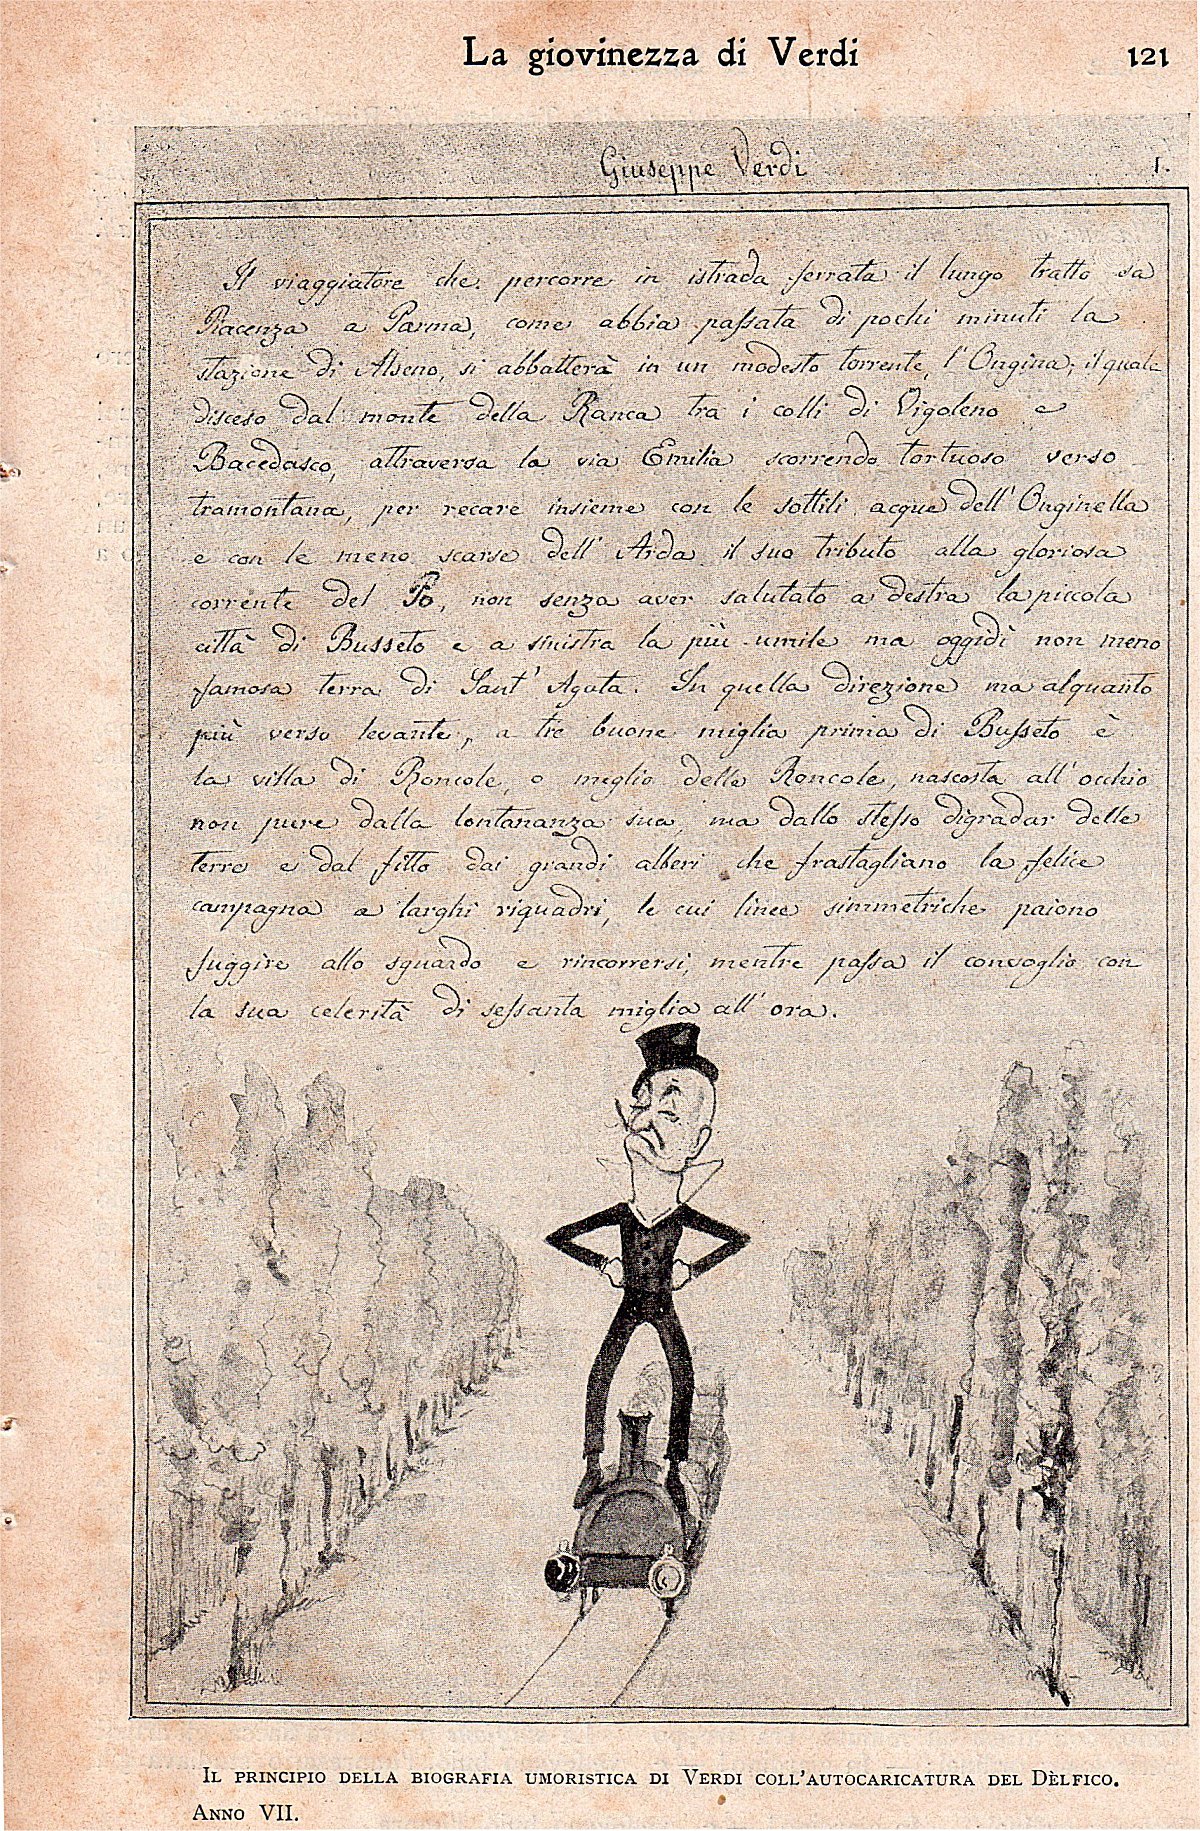 La giovinezza di Verdi 121
Giuseppe Verdi 1.
Il viaggiatore che percorre in istrada ferrata il lungo tratto da
Piacenza a Parma, come abbia passata di pochi minuti la
stazione di Alseno, si abbatterà in un modesto torrente, l'Ongina; il quale
disceso dal monte della Ranca tra i colli di Vigoleno e
Bacedasco, attraversa la via Emilia scorrendo tortuoso verso
tramontana, per recare insieme con le sottili acque dell'Onginella
e con le meno scarse dell'Arda il suo tributo alla gloriosa
corrente del Po, non senza aver salutato a destra la piccola
città di Busseto e a sinistra la più umile ma oggidì non meno
famosa terra di Sant'Agata. In quella direzione ma alquanto
più verso levante, a tre buone miglia prima di Busseto è
la villa di Roncole, o meglio delle Roncole, nascosta all'occhio
non pure dalla lontananza sua, ma dallo stesso digradar delle
terre e dal fitto dai grandi alberi che frastagliano la felice
campagna a larghi riquadri, le cui linee simmetriche paiono
fuggire allo sguardo e rincorrersi, mentre passa il convoglio con
la sua celerità di sessanta miglia all'ora.
Il principio della biografia umoristica di Verdi coll'autocaricatura del Dèlfico.
Anno VII.